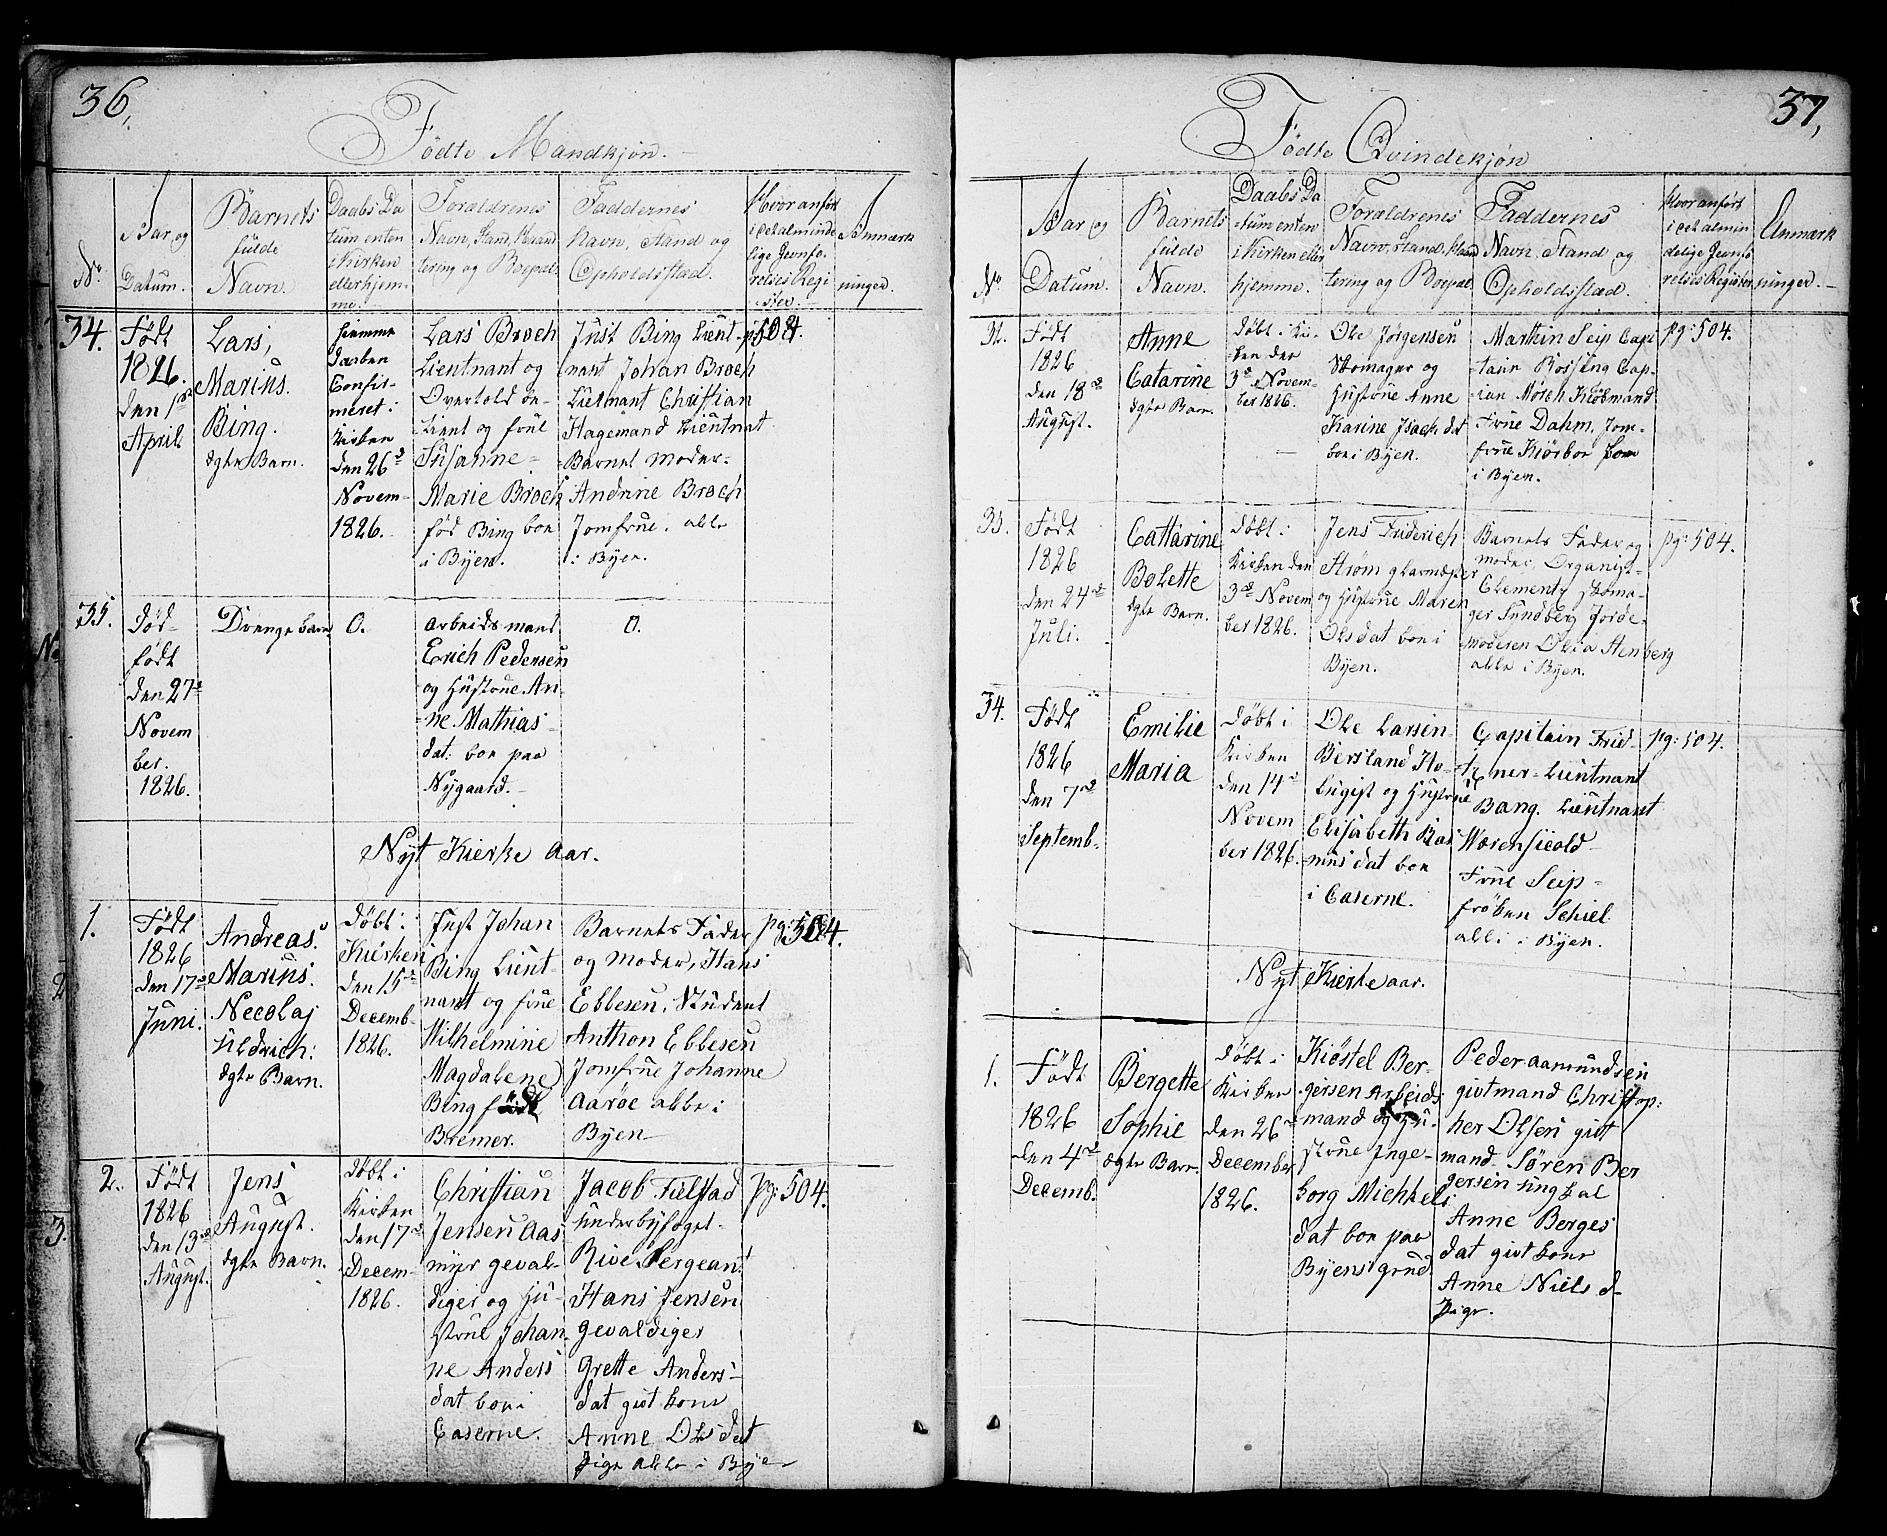 36,
Fødte Mandkjøn.
No.
Aar, og
Datum.
Barnets
fulde
Navn.
Daabs Da
tum enten
i Kirken
eller hjem-
me.
Forældrenes
Navn, Stand, Haand
tering og Boepæl
Faddernes
Navn, Stand og
Opholdsstæd.
Hvor anført
i det alminde
lige Jevnfø-
relses Regi
ster.
Anmærk
ninger.
34.
Født
1826.
den 1ste
April
Lars,
Marius.
Bing.
ægte Barn.
hiemme
daaben
Confir-
meret i
Kirken
den 26d
Novem-
1826.
Lars Broch
Lieutnant og
Overtold be-
tient og frue
Susanne
Marie Broch
fød Bing boe
i Byen.
Just Bing Lieut-
nant Johan Broch
Lieutnant Christian
Hagemand Lieutnat
Barnet Moder-
Andrine Broch
Jomfrue. alle
i Byen.
pg: 504.
35.
Død-
født
den 27d
Novem
ber.
1826.
Drengebarn
O.
Arbeidsmand
Erich Pedersen
og Hustrue An-
ne Mathias
dat: boe paa
Nygaard.
O.
Nyt Kierke Aar.
1.
Født
1826
den 17d
Juni.
Andreas
Marius
Necolaj
Uldrich:
ægte Barn.
døbt i
Kierken
den 15d
Decemb-
1826.
Just Johan
Bing Lieut-
nant og frue
Wilhelmine
Magdalene
Bing født
Bremer.
Barnets Fader
og Moder, Hans
Ebbesen, Student
Anthon Ebbesen
Jomfrue Johanne
Aaröe alle i
Byen
pg: 504.
2.
Født
1826
den 13de
August.
Jens
August.
ægte Barn.
døbt i
Kirken
den 17d
Decem-
1826.
Christian
Jensen Aas
myr geval-
diger og Hu-
strue Johan-
ne Anders
dat boe i
Caserne.
Jacob Fielstad
Underbyfoget-
Rive Sergeant
Hans Jensen
Gevaldiger
Grette Anders-
dat givt kone
Anne Olsdat
Pige alle i Bye
pg: 504.
37,
Fødte Qvindekjøn
No.
Aar og
Datum.
Barnets
fulde
Navn.
Daabs Da
tum enten
i Kirken eller
hjemme.
Forældrenes
Navn, Stand, Haand
tering og Boepæl
Faddernes
Navn, Stand og
Opholdsstæd.
Hvor anført
i det almin
delige Jevnfø
relses Register
Anmærk
ninger.
32.
Født
1826
den 18d
August.
Anne
Catarine
ægte Barn.
døbt i Kir-
ken den
3d Novem-
ber 1826.
Ole Jørgensen
Skomager og
Hustrue Anne
Karine Isach dat
boe i Byen.
Marthin Seip Capi
tain Rossing Cap-
Mörch Kiøbmand
Frue Dahm, Jom-
frue Kiörboe
i Byen.
pg: 504.
33.
Født
1826
den 24d
Juli.
Cattarine
Bolette
ægte Barn.
døbt i
Kirken den
3d Novem
ber 1826.
Jens Friderich
Strøm glarmester
og Hustrue Maren
Olsdat boe i
Byen.
Barnets Fader og
moder, Organist
Clementz skoma-
ger Sundberg Jorde-
moderen Olia Stenberg
alle i Byen.
pg: 504.
34.
Født
1826
den 7d
Septemb.
Emilie
Maria
døbt i
Kirken
den 14d
Novem
ber 1826.
Ole Larsen
Bersland Ho-
buist og Hustrue
Elisabeth Ras
mus dat boe
i Caserne.
Capitain Frid-
tzner Lieutnant
Bang. Lieutnant
Wærenskiold
Frue Seip
frøken Schiel
alle i Byen.
pg: 504.
Nyt Kierke aar.
1.
Født
1826
den 4d
Decemb.
Bergette
Sophie
ægte Barn
døbt i
Kirken
den 26d
December
1826.
Kiøstel Ber-
gersen Arbeids
mand og Hu-
strue Inge-
borg Michkels
dat boe paa
Byens grund
Peder Aamundsen
givtmand Christop:
her Olsen givt
mand. Søren Ber
gersen Ungkal
Anne Berges
dat givt kone
Anne Niels d-
Pige.